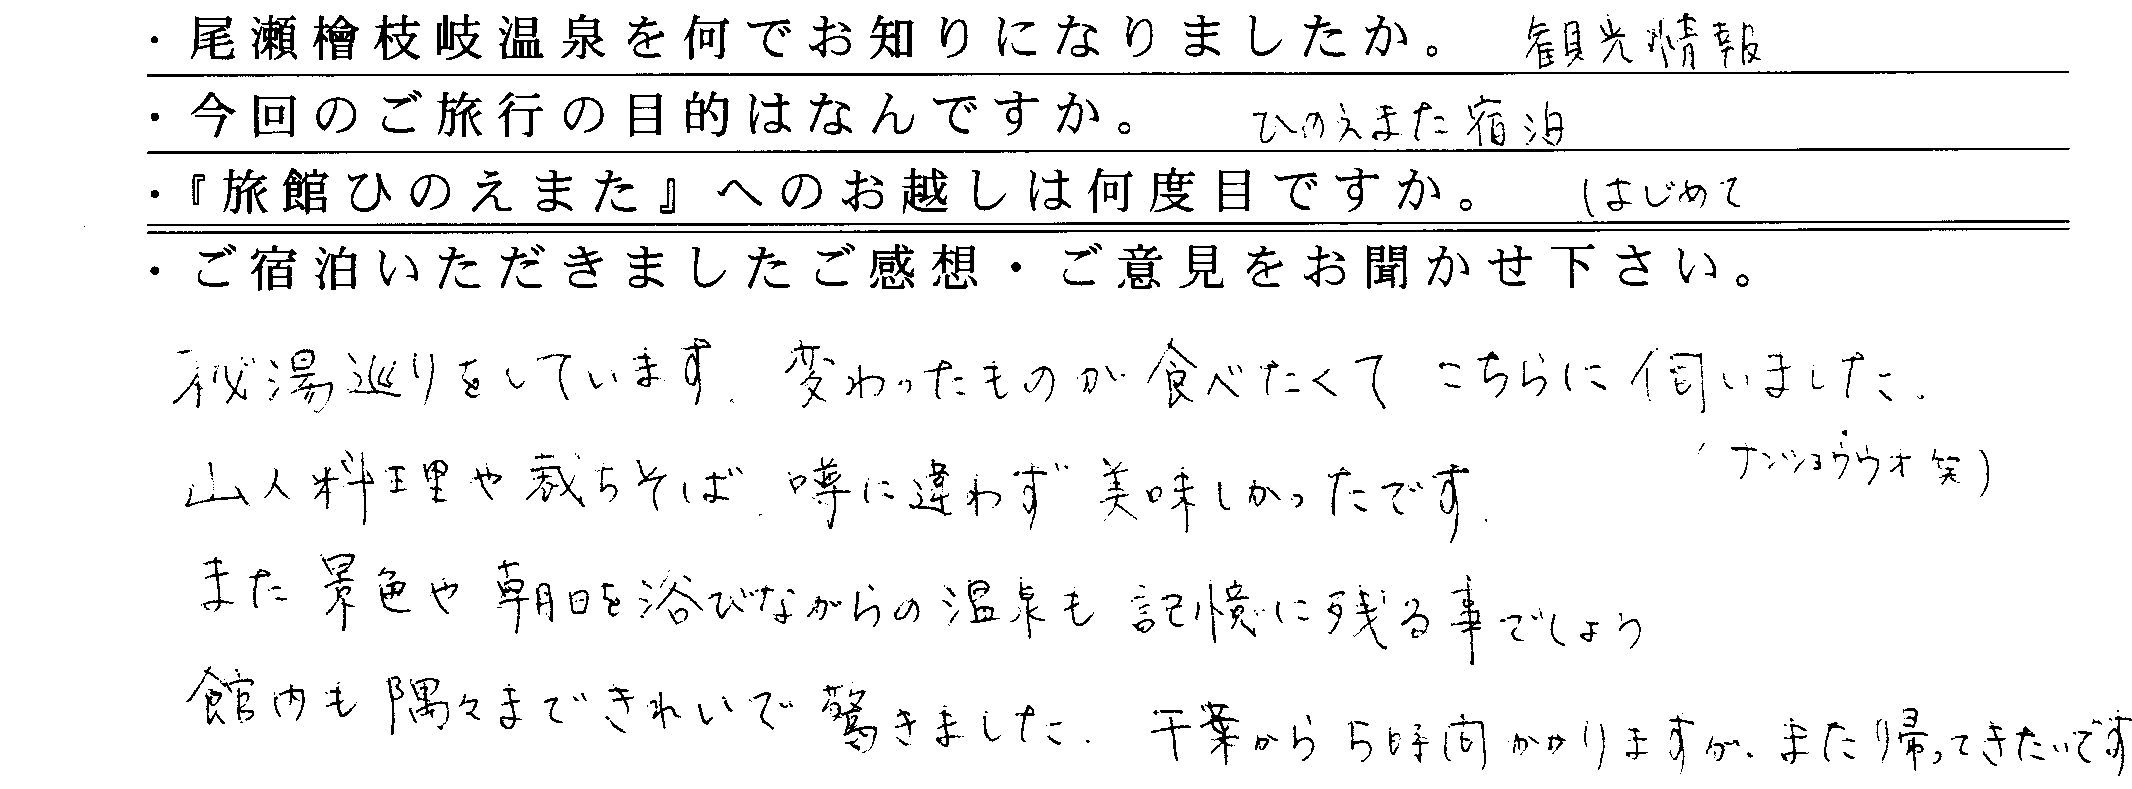 ・尾瀬檜枝岐温泉を何でお知りになりましたか。 観光情報
・今回のご旅行の目的はなんですか。 ひのえまた宿泊
・『旅館ひのえまた』へのお越しは何度目ですか。 はじめて
・ご宿泊いただきましたご感想・ご意見をお聞かせ下さい。
秘湯巡りをしています. 変わったものが食べたくて こちらに伺いました.
(サンショウウオ笑)
山人料理や裁ちそば. 噂に違わず美味しかったです.
また景色や朝日を浴びながらの温泉も記憶に残る事でしょう
館内も隅々まできれいで驚きました. 千葉から5時間かかりますが. また帰ってきたいです